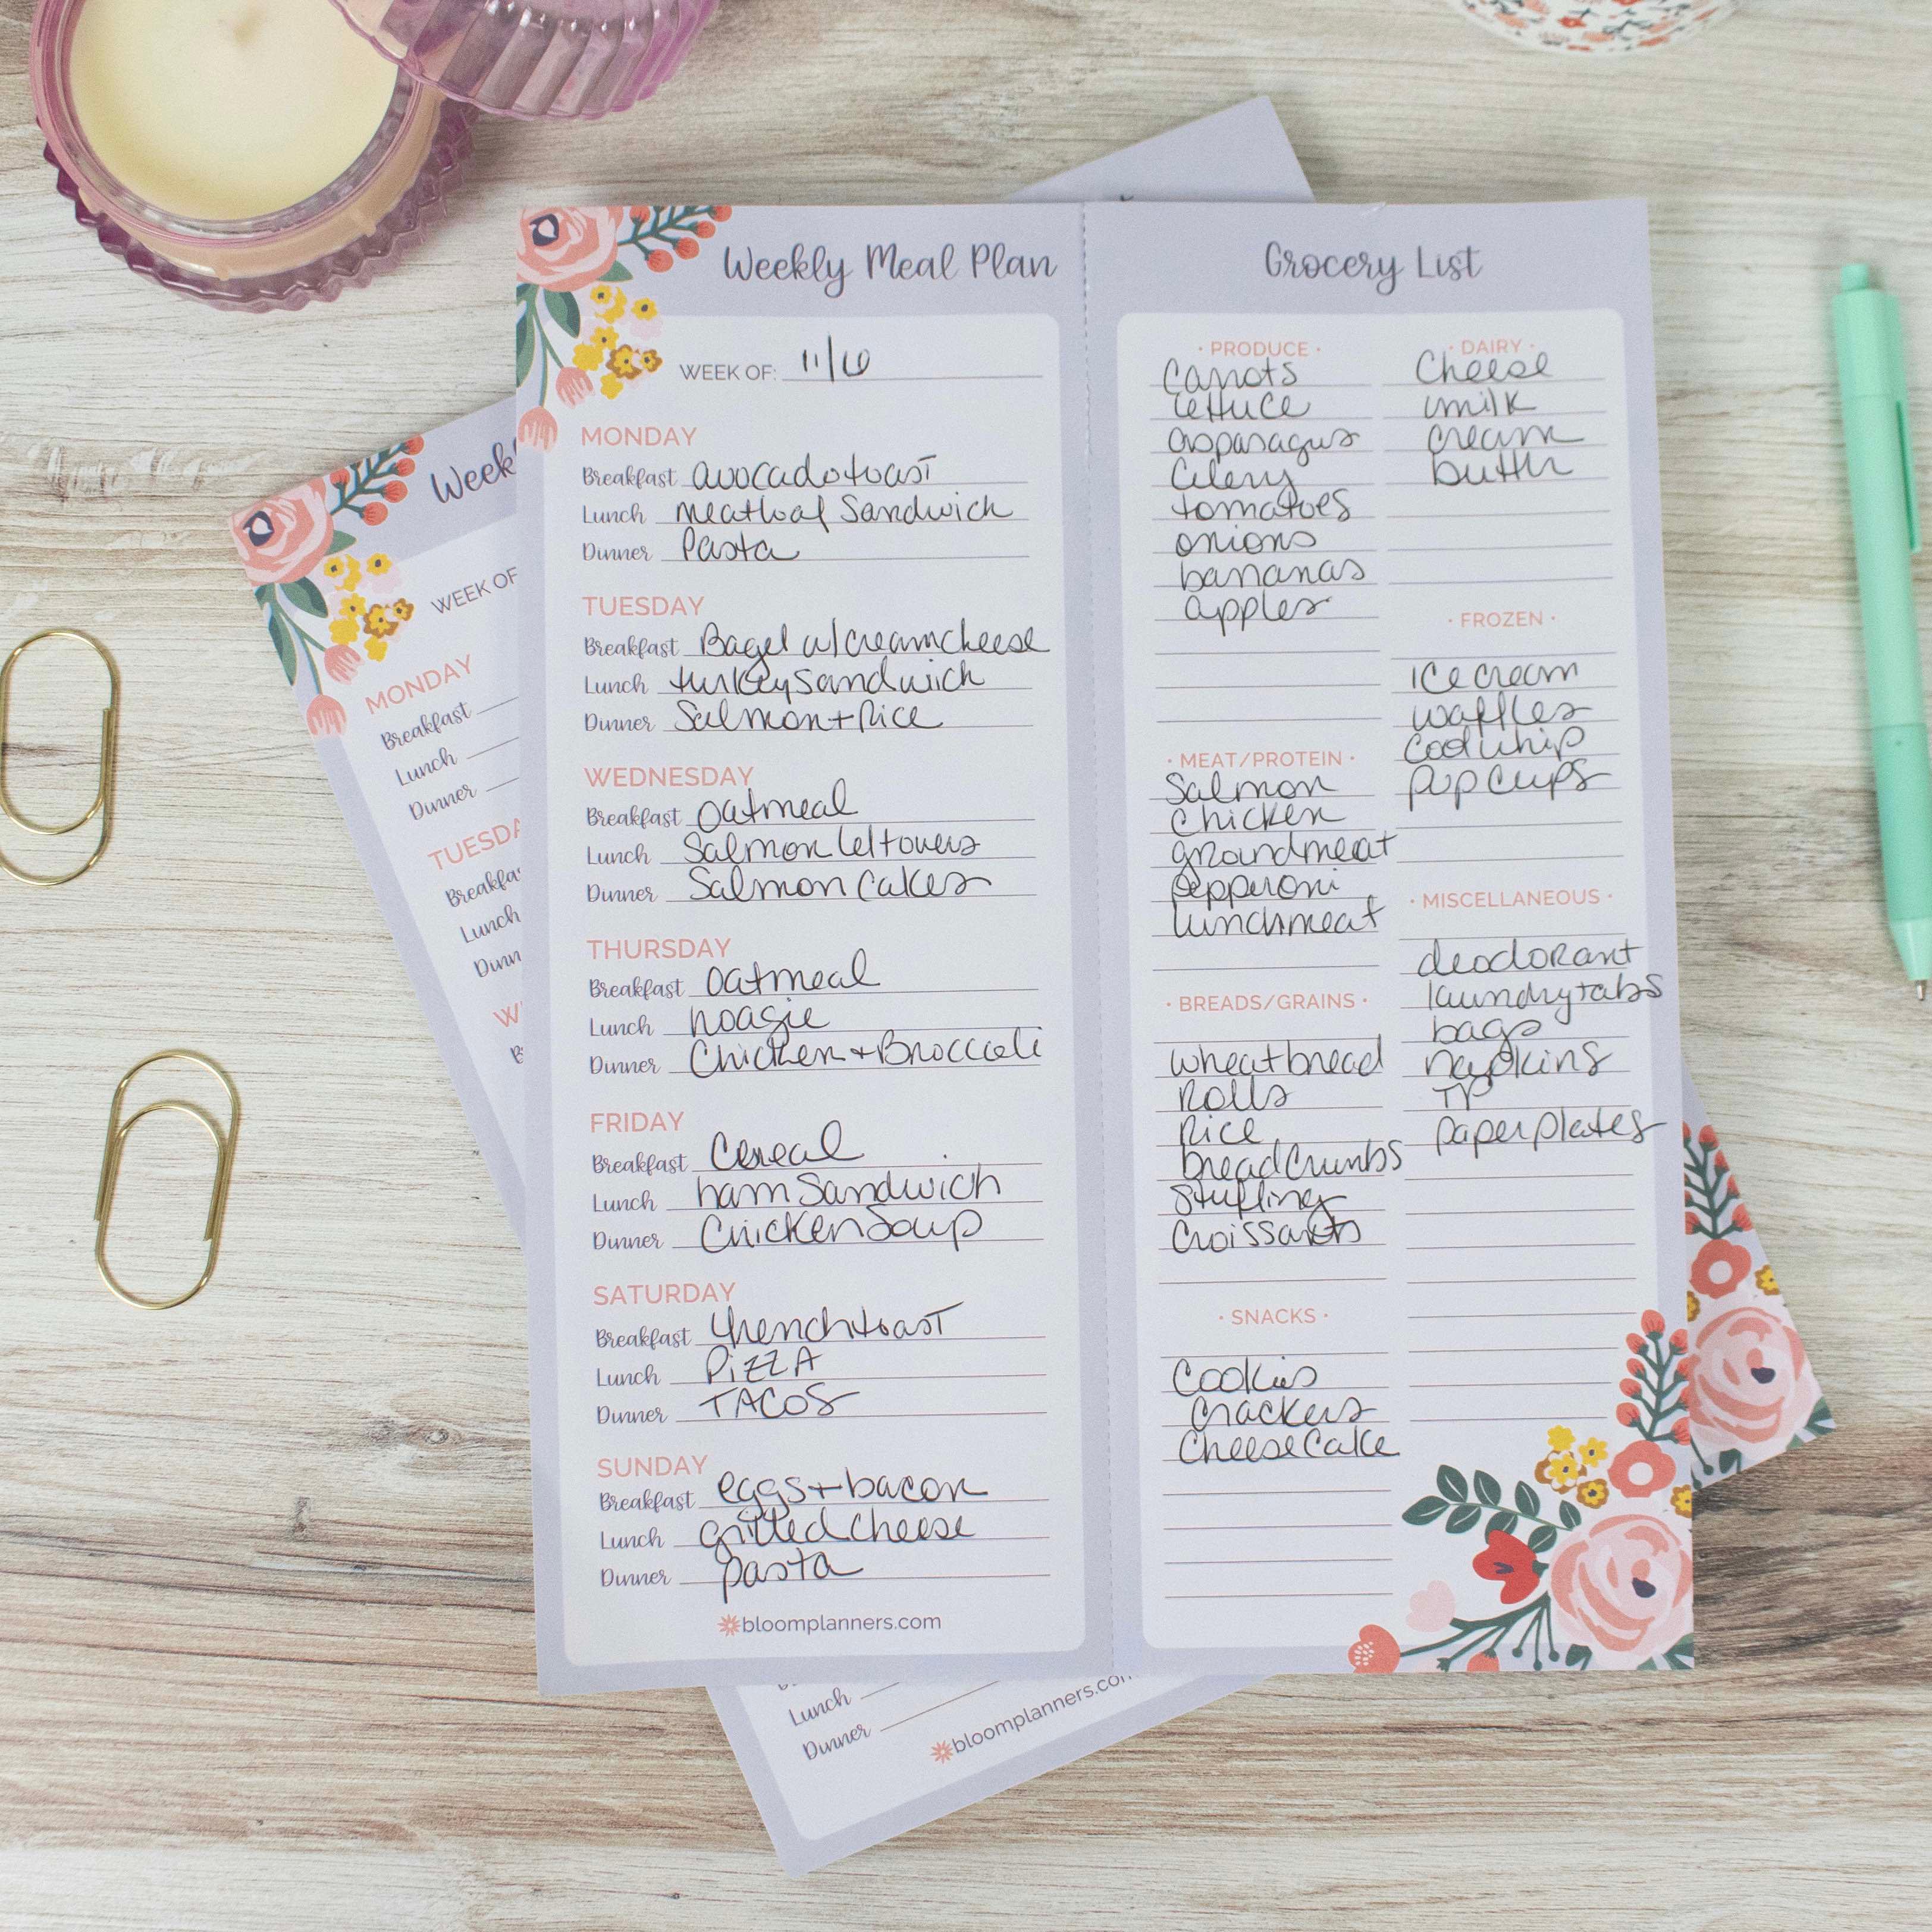 Weekly Meal Plan
WEEK OF: 11/6
MONDAY
Breakfast avocado toast
Lunch meatloaf Sandwich
Dinner Pasta
TUESDAY
Breakfast Bagel w/ creamcheese
Lunch turkey sandwich
Dinner Salmon + Rice
WEDNESDAY
Breakfast oatmeal
Lunch Salmon leftovers
Dinner Salmon Cakes
THURSDAY
Breakfast oatmeal
Lunch hoagie
Dinner Chicken + Broccoli
FRIDAY
Breakfast Cereal
Lunch ham Sandwich
Dinner Chicken Soup
SATURDAY
Breakfast french toast
Lunch PIZZA
Dinner TACOS
SUNDAY
Breakfast eggs + bacon
Lunch grilled cheese
Dinner pasta
bloomplanners.com
Grocery List
· PRODUCE ·
Carrots
lettuce
asparagus
Celery
tomatoes
onions
bananas
apples
· MEAT/PROTEIN ·
Salmon
Chicken
groundmeat
pepperoni
lunchmeat
· BREADS/GRAINS ·
wheat bread
Rolls
Rice
bread crumbs
stuffing
Croissants
· SNACKS ·
Cookies
Crackers
Cheese Cake
· DAIRY ·
Cheese
milk
cream
butter
· FROZEN ·
ice cream
waffles
cool whip
pup cups
· MISCELLANEOUS ·
deodorant
laundry tabs
bags
napkins
TP
paper plates
Weekl
WEEK OF
MONDAY
Breakfast
Lunch
Dinner
TUESDA
Breakfa
Lunch
Dinn
W
B
Lunch
Dinner
bloomplanners.com